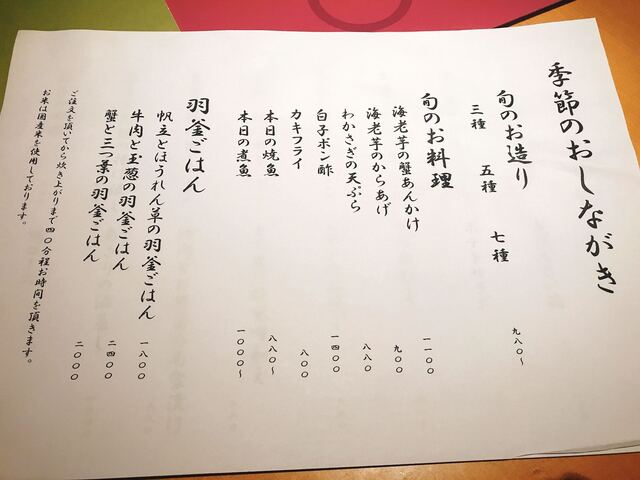 季節のおしながき
旬のお造り
三種 五種 七種 九八〇〜
旬のお料理
海老芋の蟹あんかけ 一一〇〇
海老芋のからあげ 九〇〇
わかさぎの天ぷら 八八〇
白子ポン酢 一四〇〇
カキフライ 八〇〇
本日の焼魚 八八〇〜
本日の煮魚 一〇〇〇〜
羽釜ごはん
帆立とほうれん草の羽釜ごはん 一八〇〇
牛肉と玉葱の羽釜ごはん 二四〇〇
蟹と三つ葉の羽釜ごはん 二〇〇〇
ご注文を頂いてから炊き上がりまで四〇分程お時間を頂きます。
お米は国産米を使用しております。